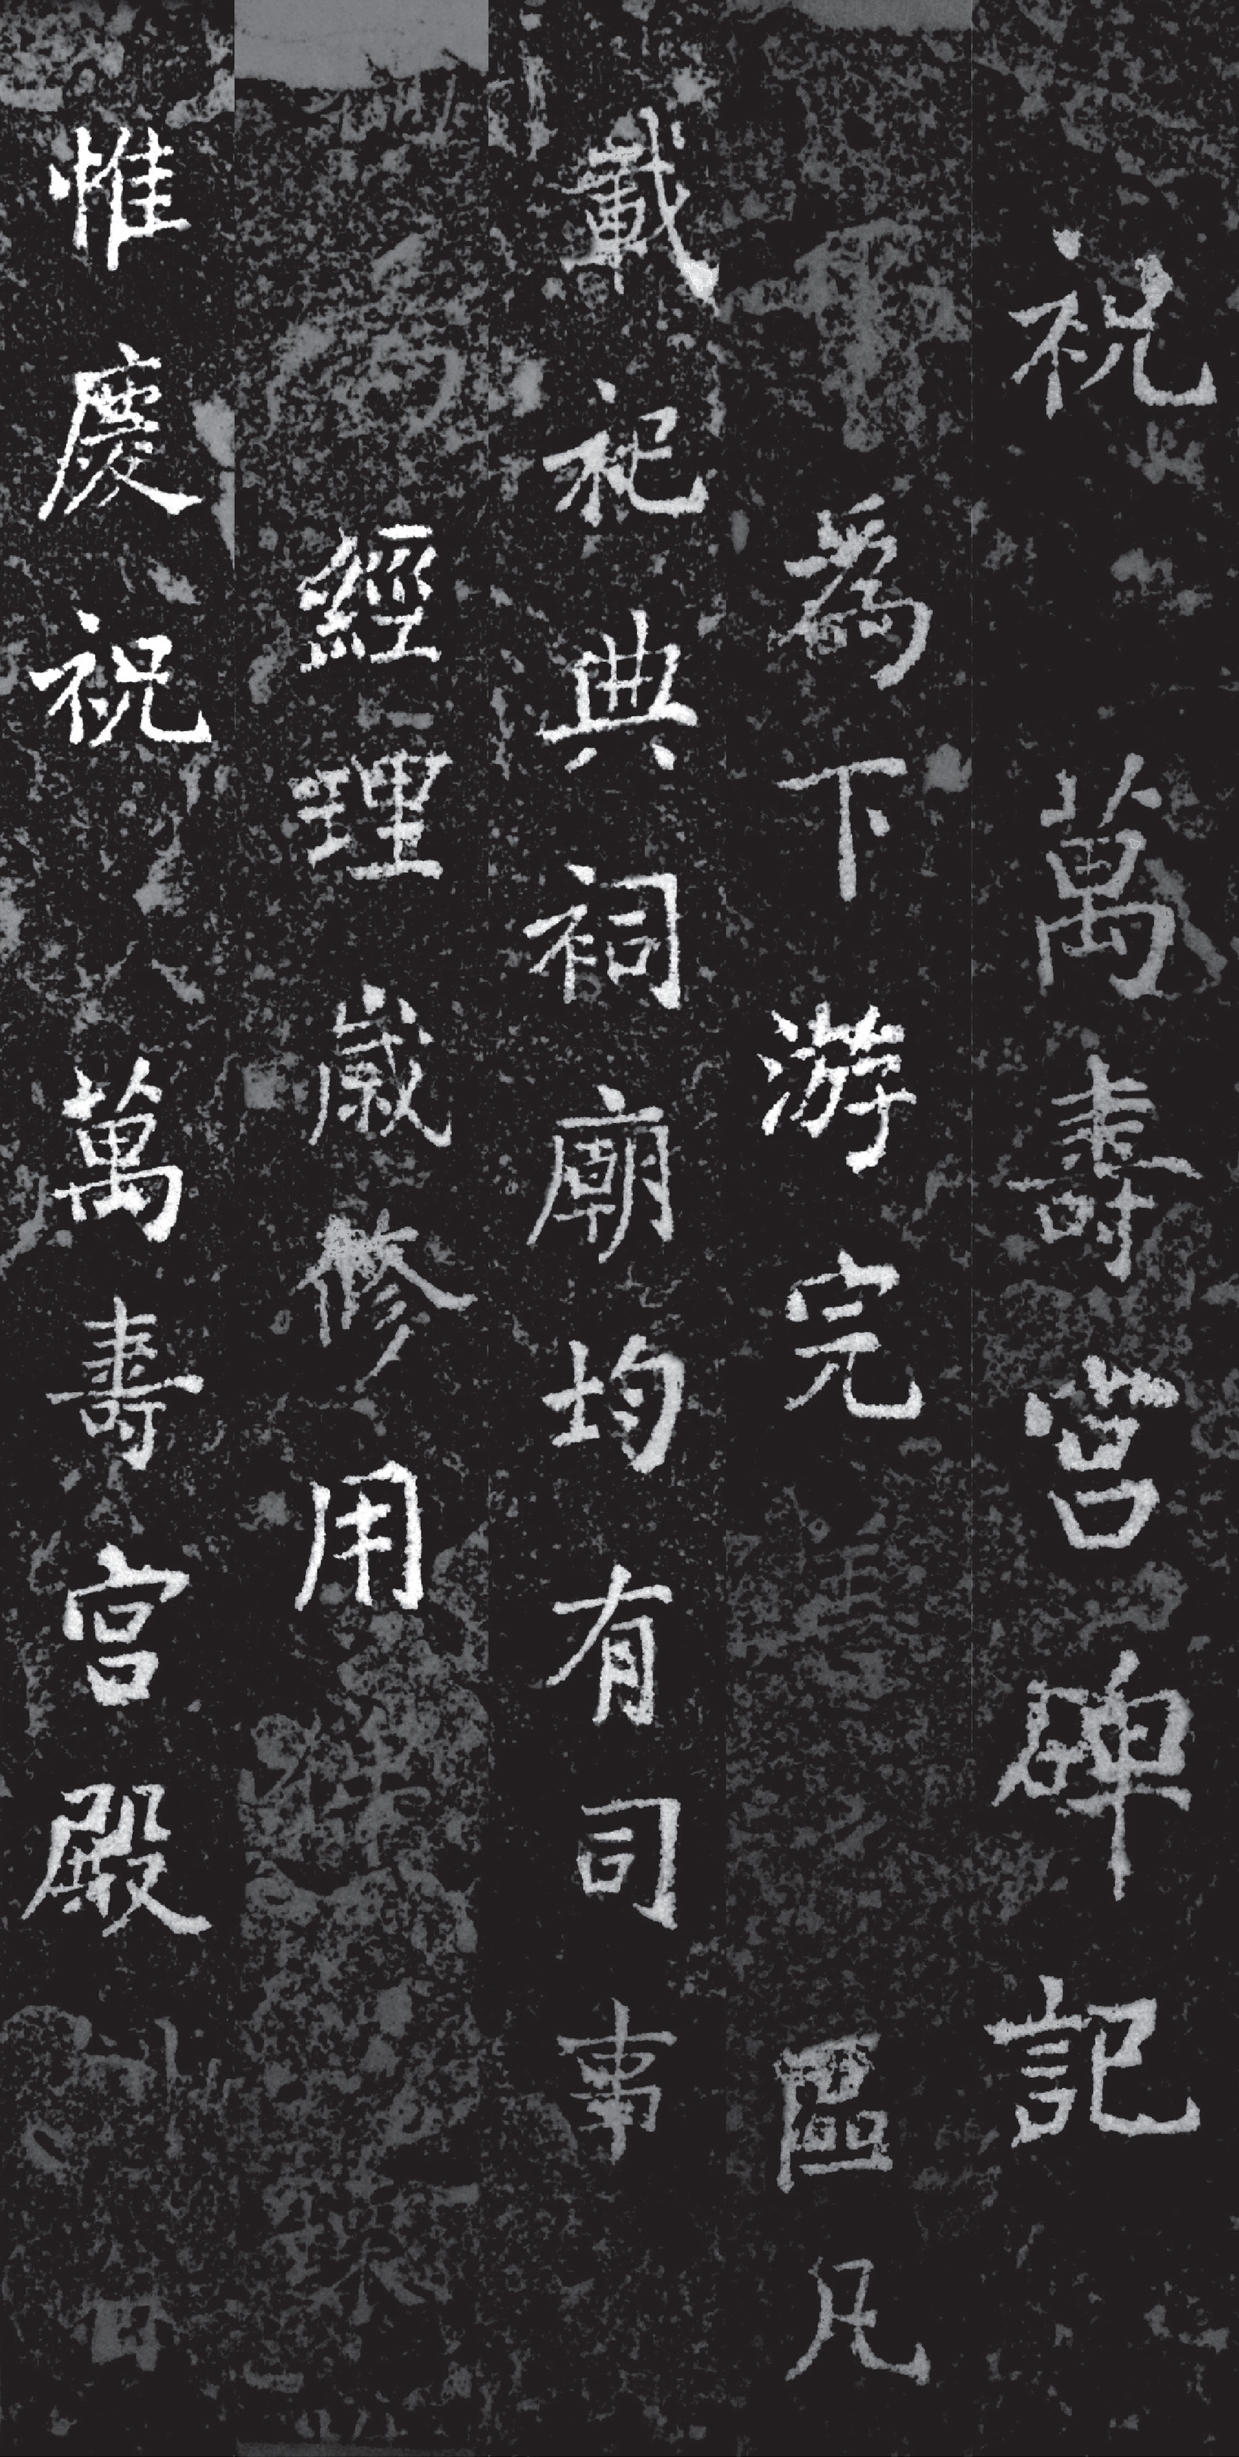 祝萬壽宮碑記
爲下游完區凡
載祀典祠廟均有司事
經理歲修用
惟慶祝萬壽宮殿